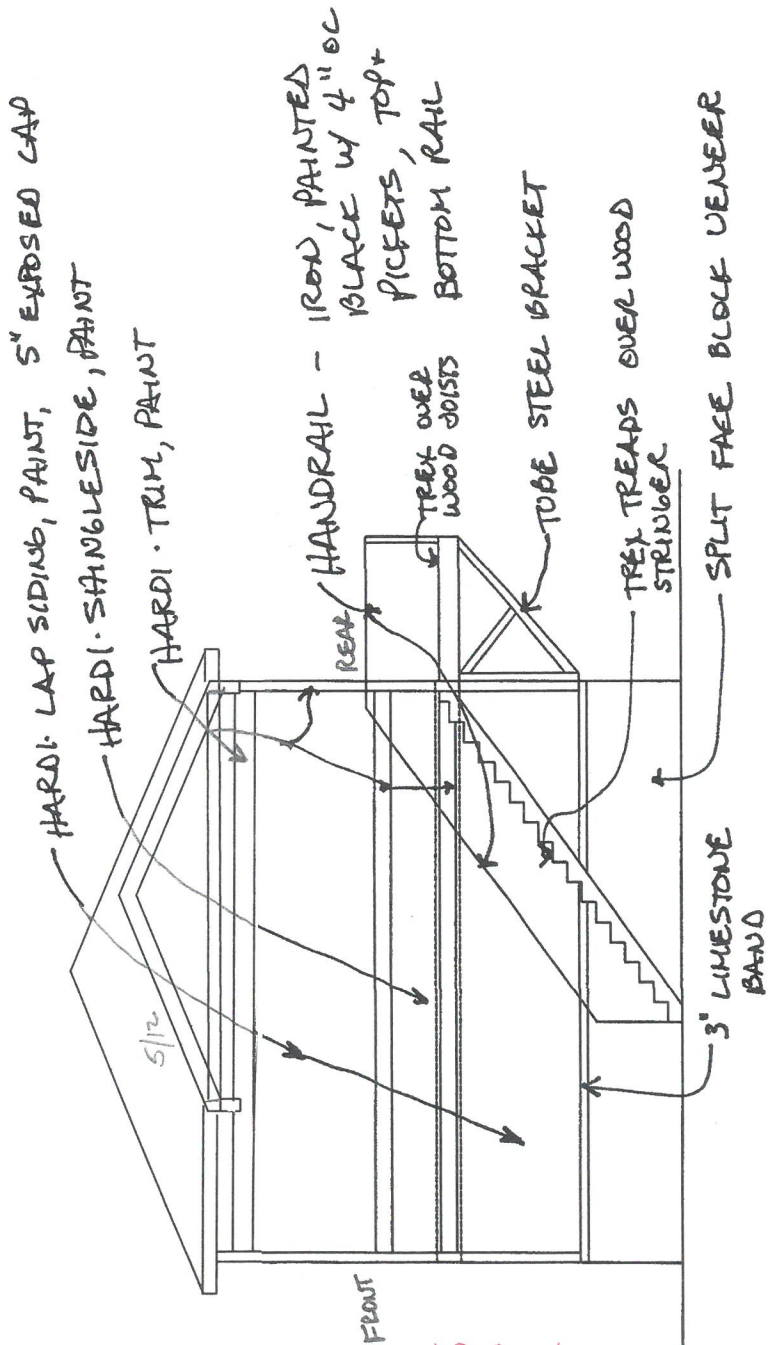 HARDI. LAP SIDING, PAINT, 5" EXPOSED LAP
HARDI. SHINGLESIDE, PAINT
HARDI. TRIM, PAINT
HANDRAIL - IRON, PAINTED
BLACK W/ 4" OC
PICKETS, TOP +
BOTTOM RAIL
TREX OVER
WOOD JOISTS
TUBE STEEL BRACKET
TREX TREADS OVER WOOD
STRINGER
SPLIT FACE BLOCK VENEER
3" LIMESTONE
BAND
5/12
REAR
FRONT